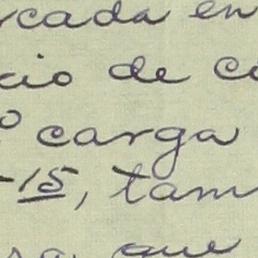 cada en
cio de c
o carga
-15, tam
que